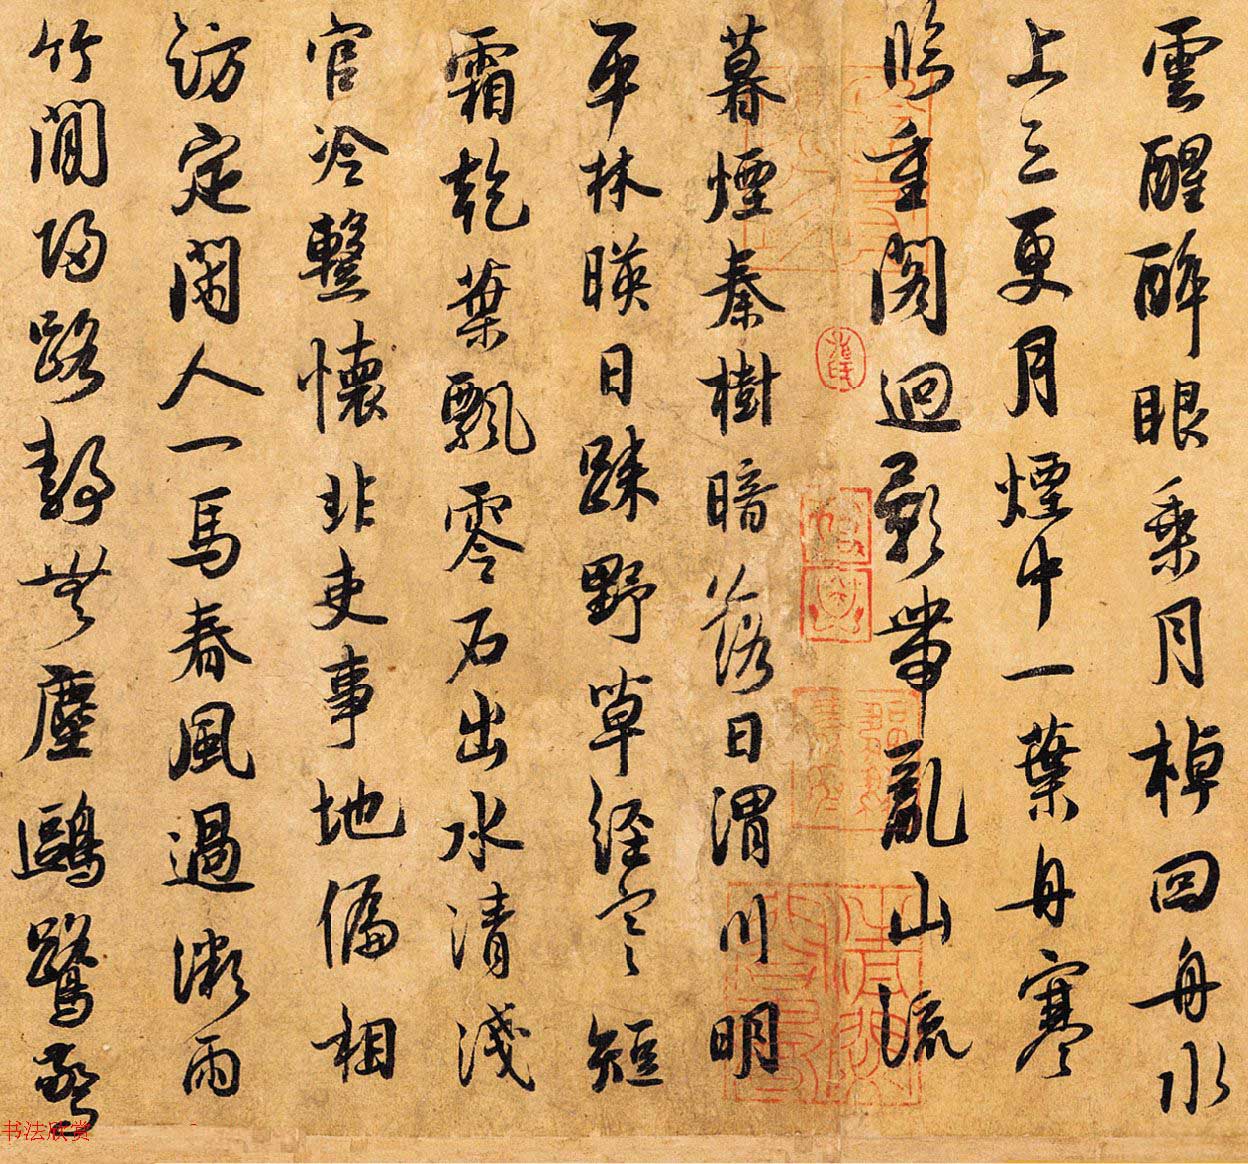 雲醒醉眼乘月棹回舟水
上三更月煙中一葉舟寒
臨重閣迥影帶亂山
暮煙秦樹暗落日渭川明
平林暎日踈野草經寒短
霜乾葉飄零石出水清淺
官冷懷非吏事地偏相
訪定閑人一馬春風過雨
竹間歸路靜無塵鷗鷺驚
书法欣赏